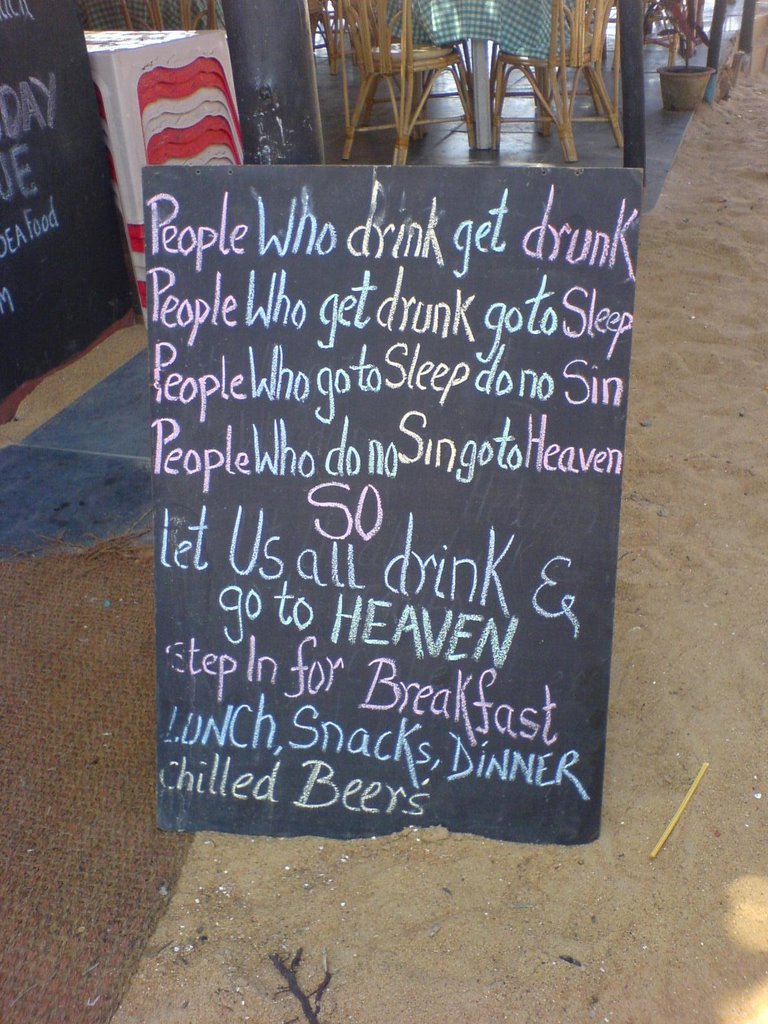 DAY
UE
SEA Food
People Who drink get drunk
People Who get drunk go to Sleep
People Who go to Sleep do no Sin
People Who do no Sin go to Heaven
SO
let Us all drink &
go to HEAVEN
Step In for Breakfast
LUNCH, Snacks, DINNER
Chilled Beers